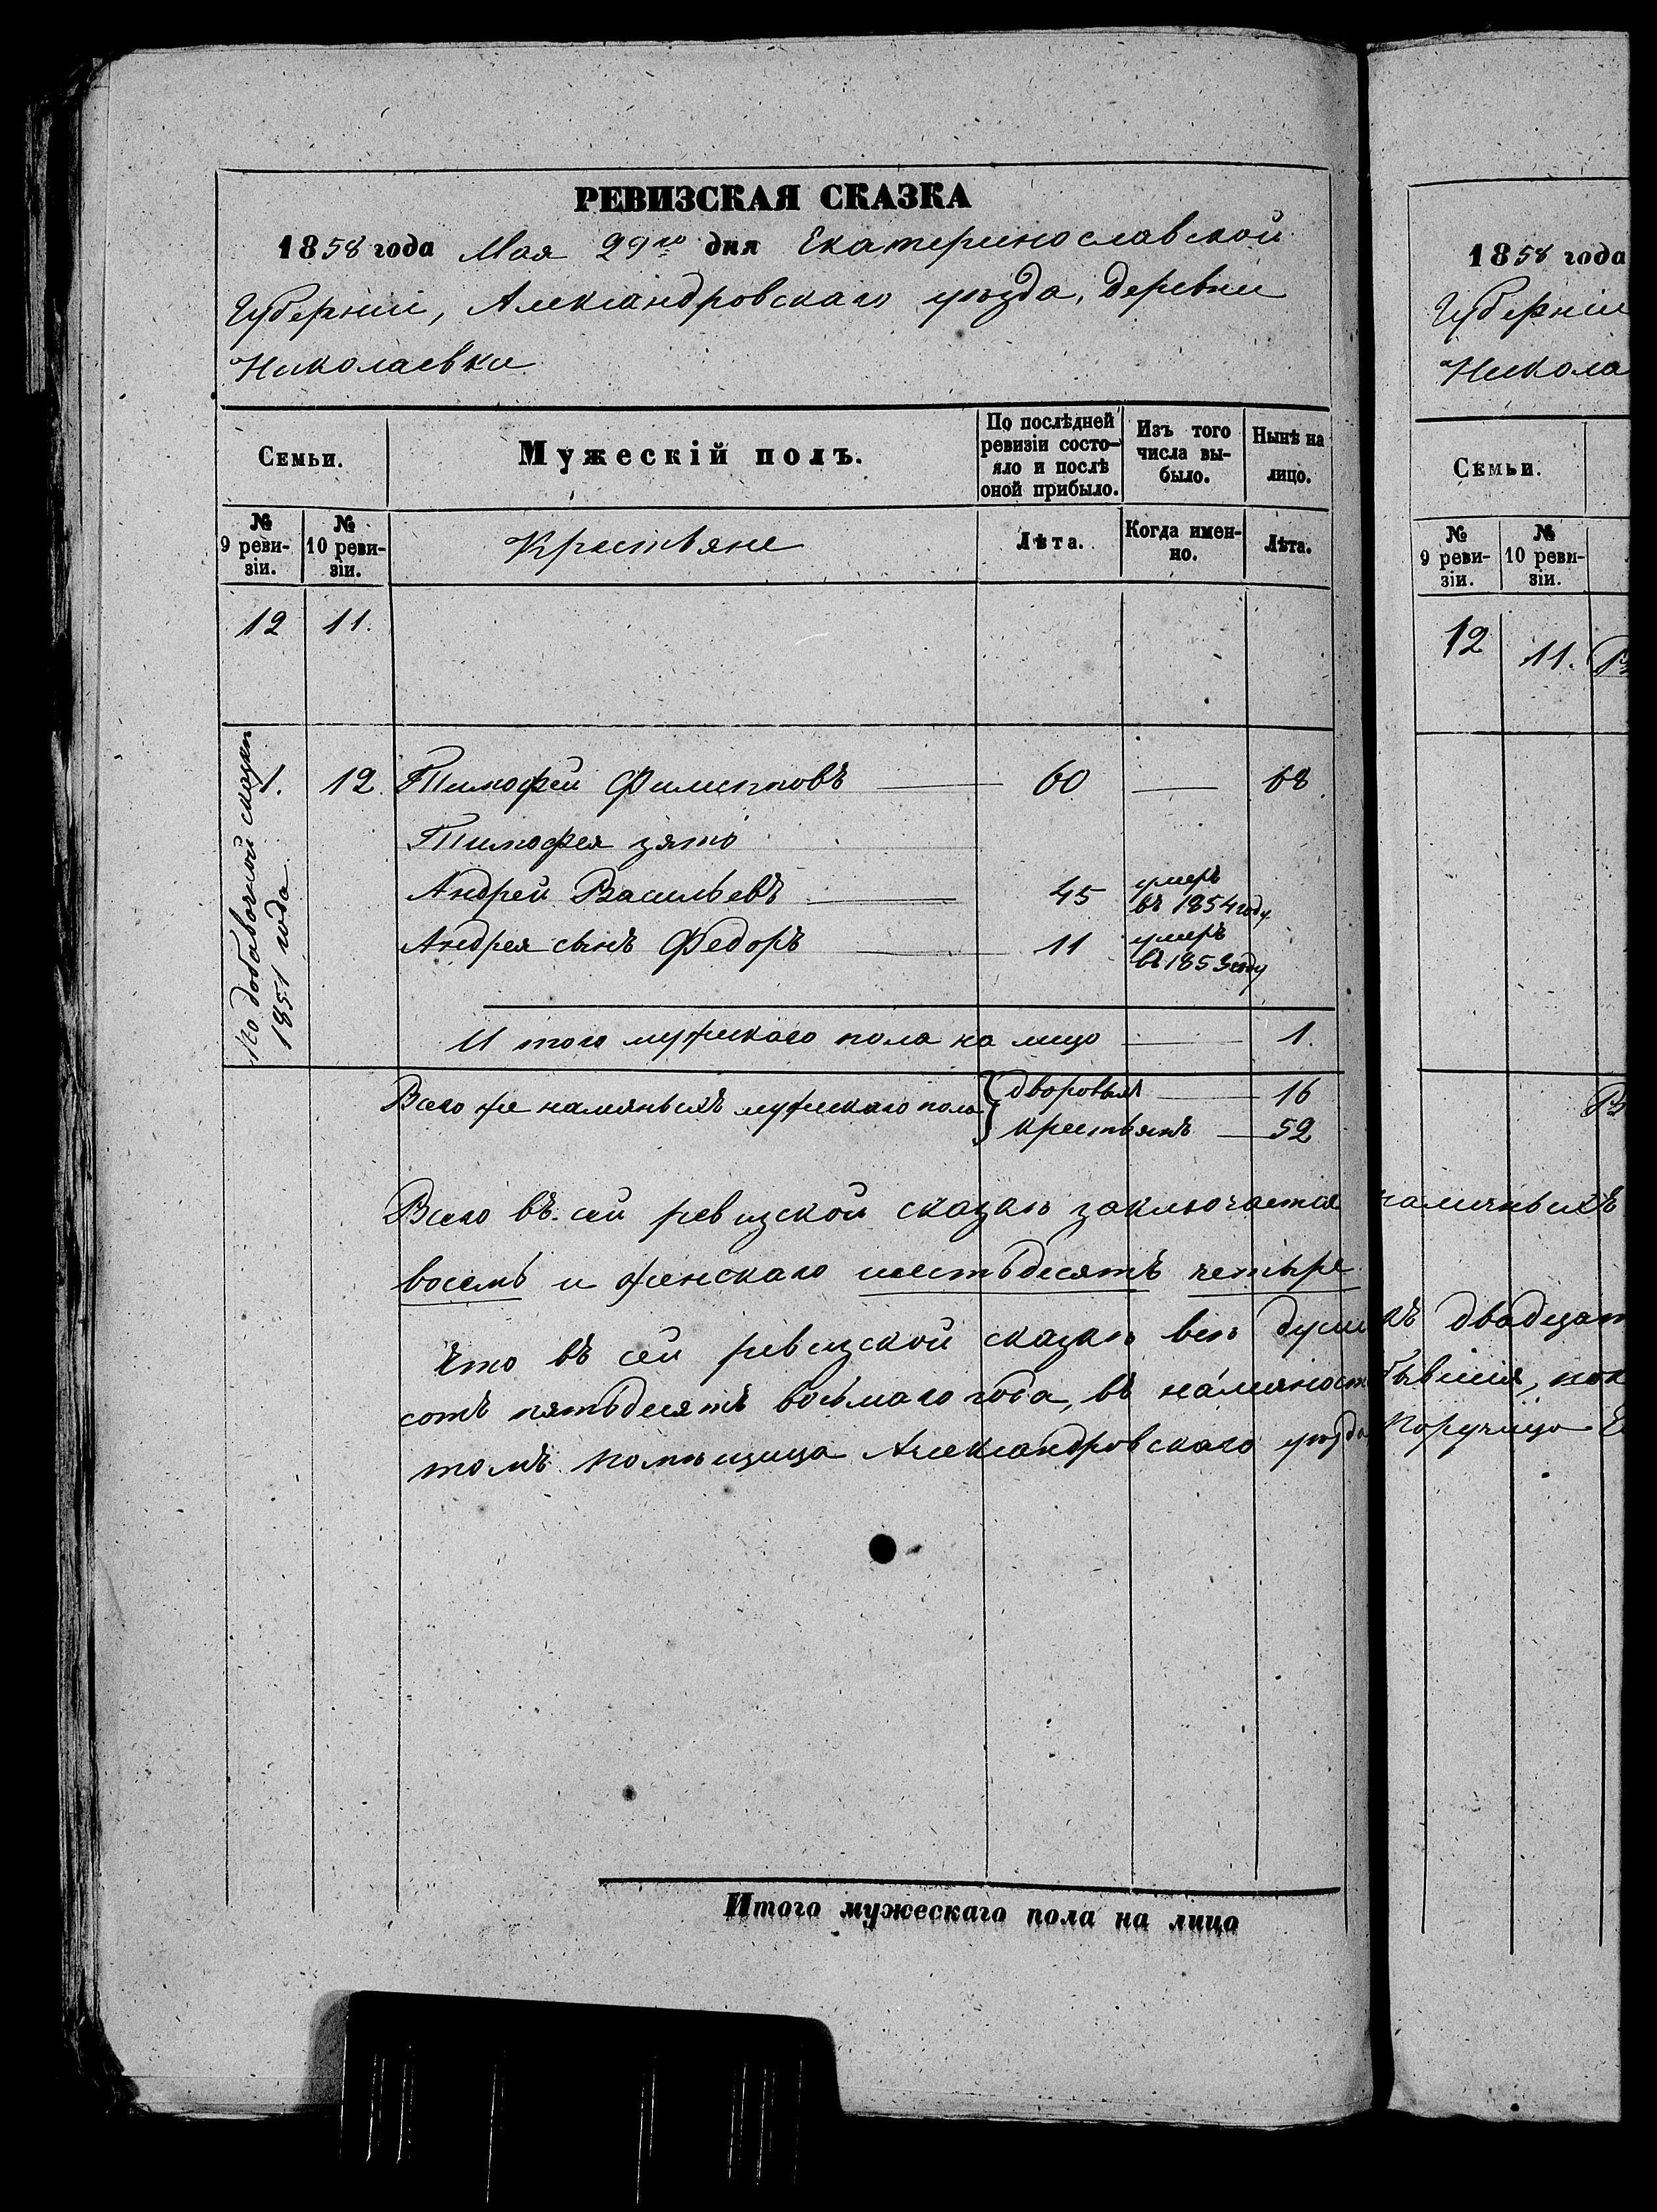 РЕВИЗСКАЯ СКАЗКА
1858 года Мая 29го дня Екатеринославской
Губерніи, Александровскаго уѣзда, деревни
Николаевки
Семьи.
Мужескій полъ.
По послѣдней ревизіи состо-
яло и послѣ
оной прибыло.
Изъ того
числа вы-
было.
Нынѣ на
лицо.
№
9 реви-
зіи.
№
10 реви-
зіи.
Крестьяне
Лѣта.
Когда имен-
но.
Лѣта.
12 11.
По добавочной сказкѣ
1851 года
1. 12. Тимофей Филиповъ 60 — 68
Тимофея зять
Андрей Васильевъ 45 умеръ въ 1854 году
Андрея сынъ Федоръ 11 умеръ въ 1853 году
И того мужескаго пола на лицо 1.
Всего же наличныхъ мужескаго пола { дворовыхъ 16
крестьянъ 52
Всего въ сей ревизской сказкѣ заключается
восемь и женскаго шестьдесятъ четыре
Что въ сей ревизской сказкѣ всѣ души
сотъ пятьдесятъ восьмаго года, въ наличност
томъ помѣщица Александровскаго уѣзда
Итого мужескаго пола на лицо
1858 года
Губерніи
Никола
Семьи.
№
9 реви-
зіи.
№
10 реви-
зіи.
12 11.
наличныхъ
къ двадцат
бывшія, пок
Поручица